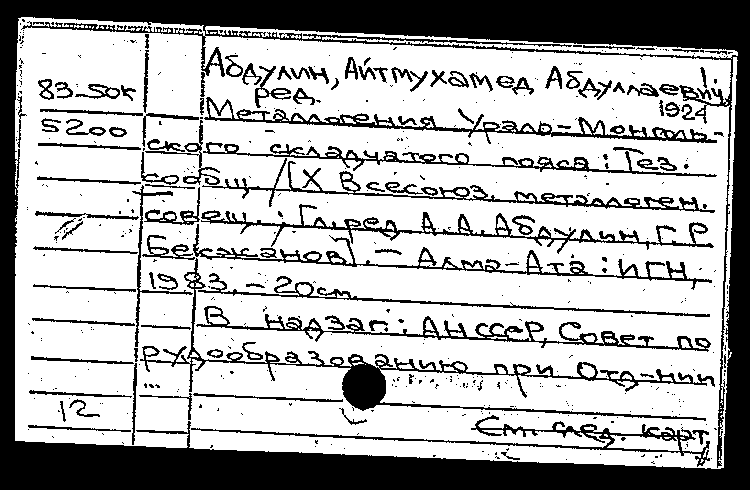 Абдулин, Айтмухамед Абдуллаевич,
83-50к ред. 1924
Металлогения Урало-Монголь-
5200
ского складчатого пояса: Тез.
сообщ / [X Всесоюз. металлоген.
совещ.; Гл. ред А.А. Абдулин, Г.Р.
Бекжанов]. - Алма-Ата: ИГН,
1983. - 20 см.
В надзаг.: АН ССР, Совет по
рудообразованию при Отд-нии
...
12
См. след. карт.